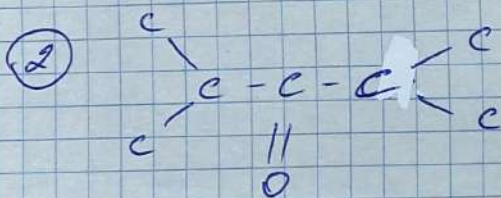 2
C C
C - C - C
C C
||
O